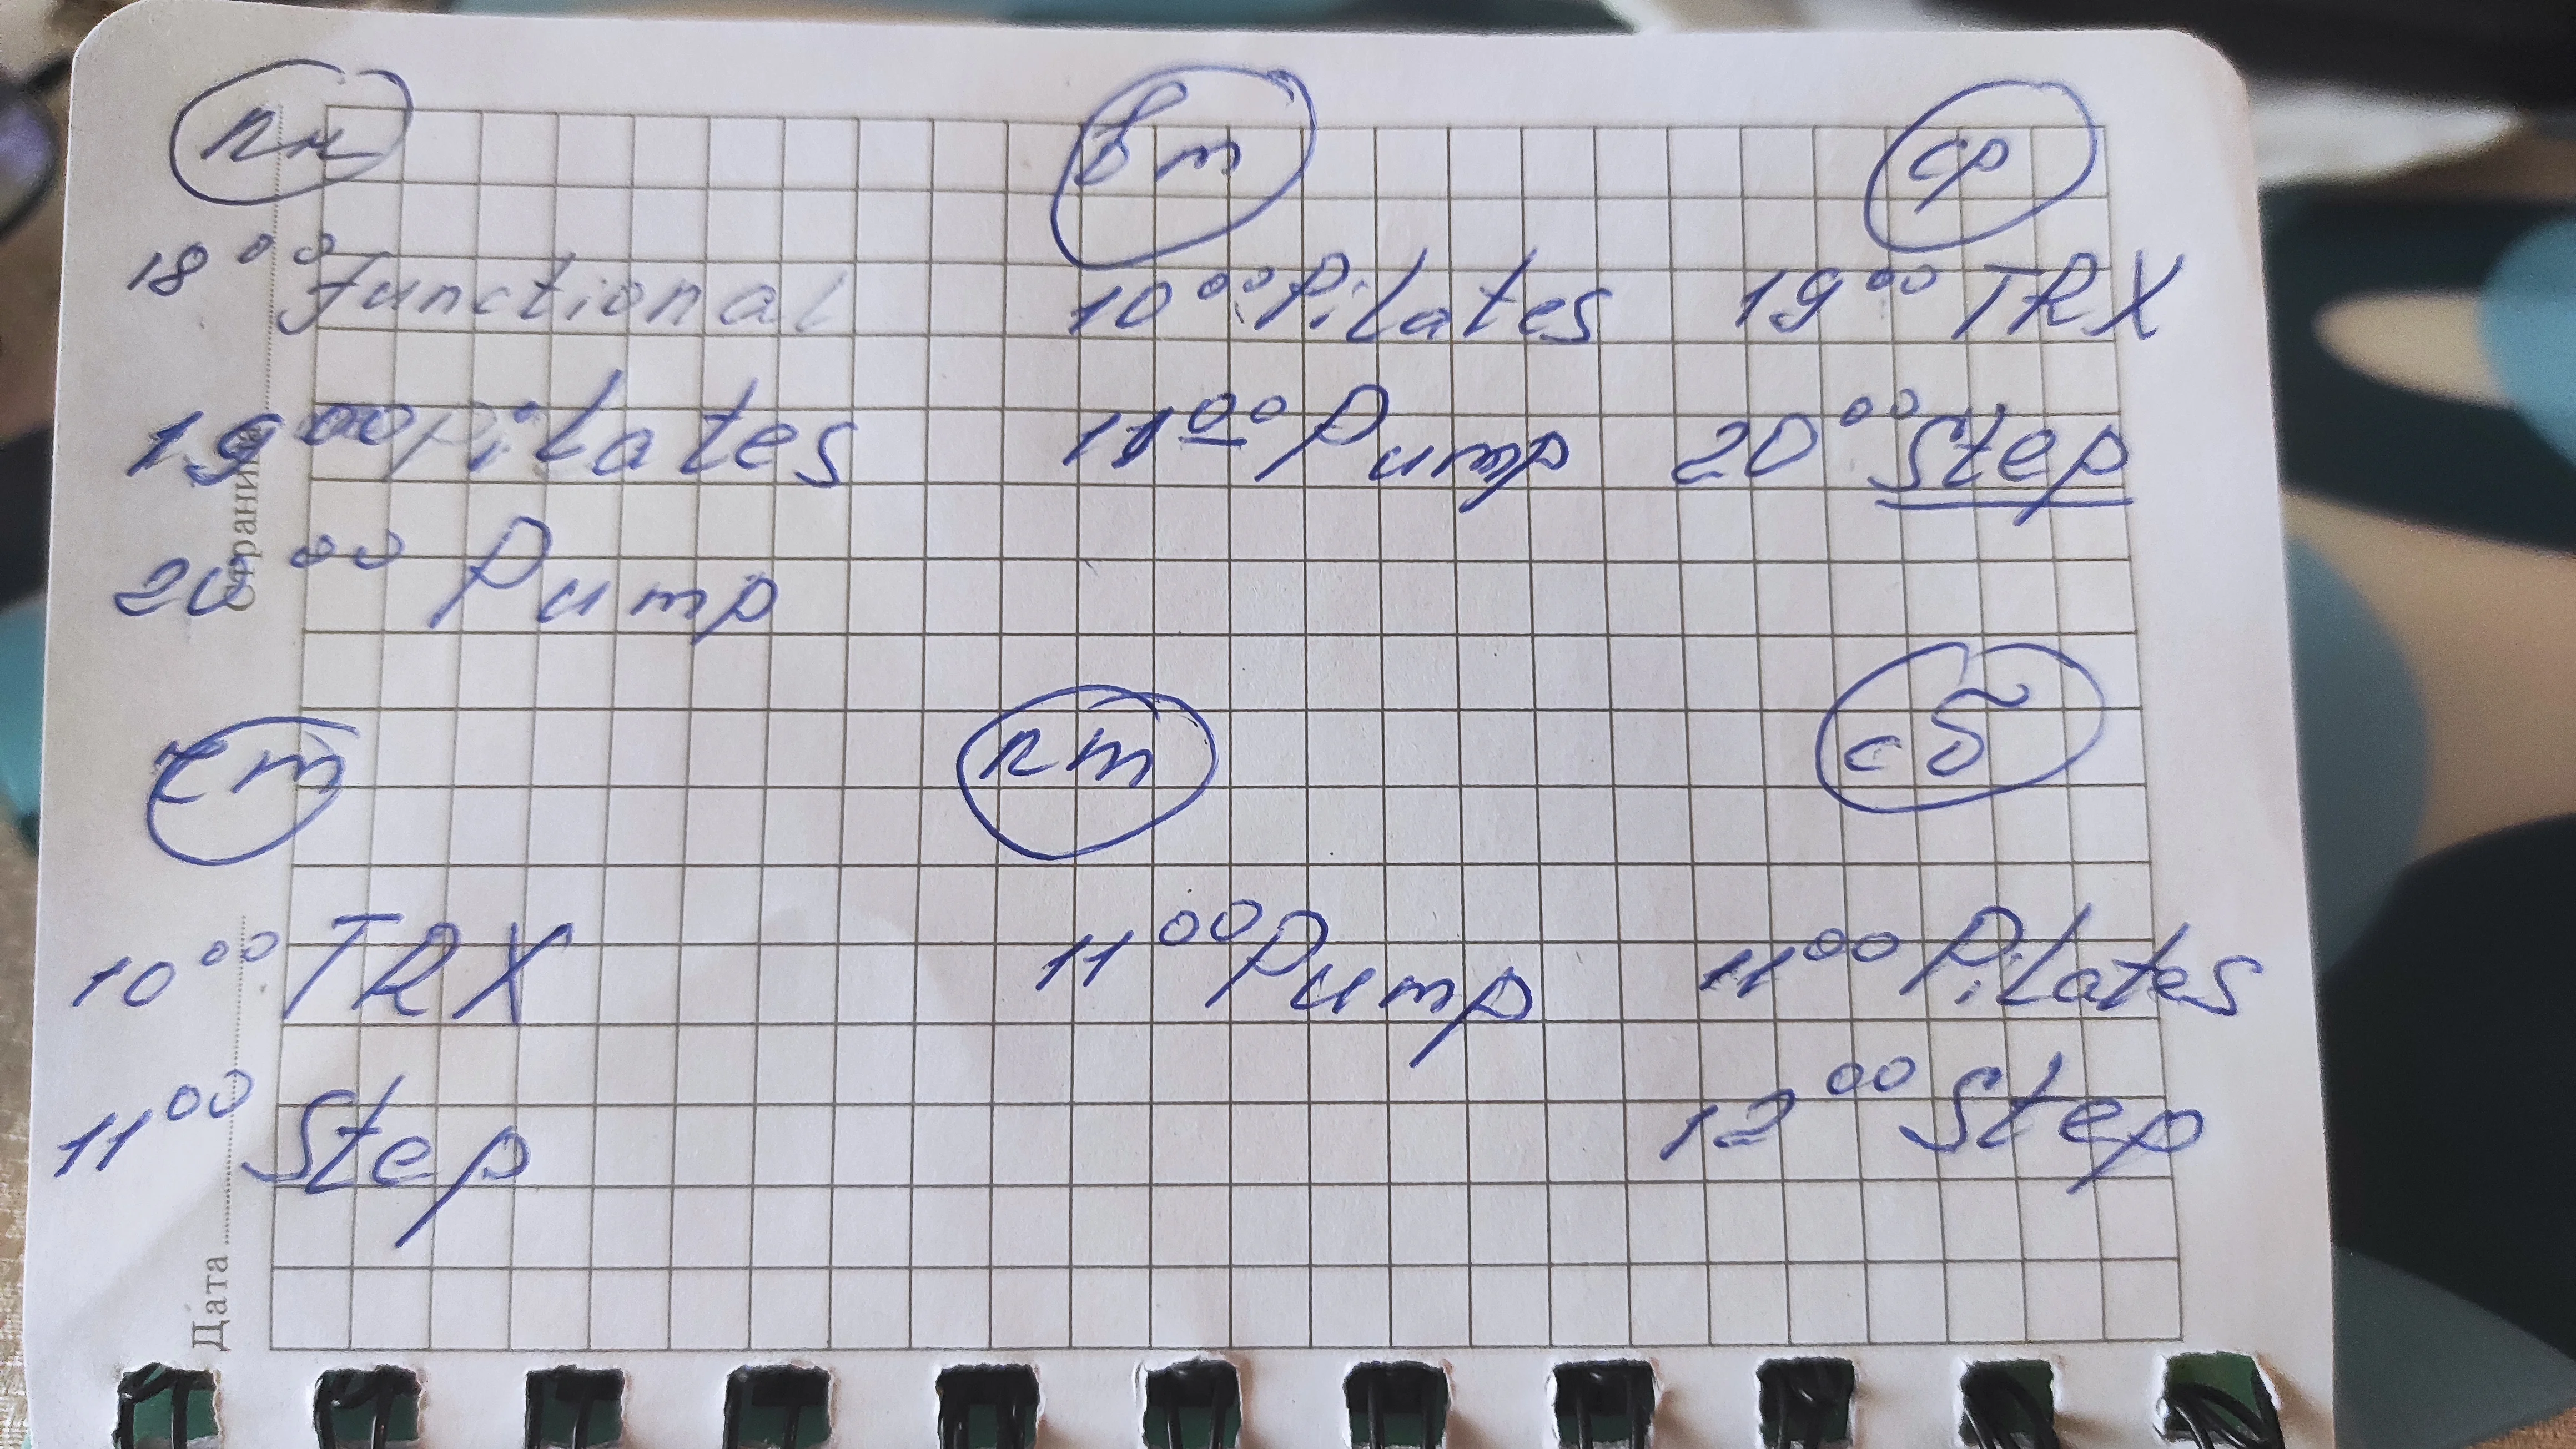 пн
18⁰⁰ Functional
19⁰⁰ Pilates
20⁰⁰ Pump
вт
10⁰⁰ Pilates
11⁰⁰ Pump
ср
19⁰⁰ TRX
20⁰⁰ Step
чт
10⁰⁰ TRX
11⁰⁰ Step
пт
11⁰⁰ Pump
сб
11⁰⁰ Pilates
12⁰⁰ Step
Страница
Дата